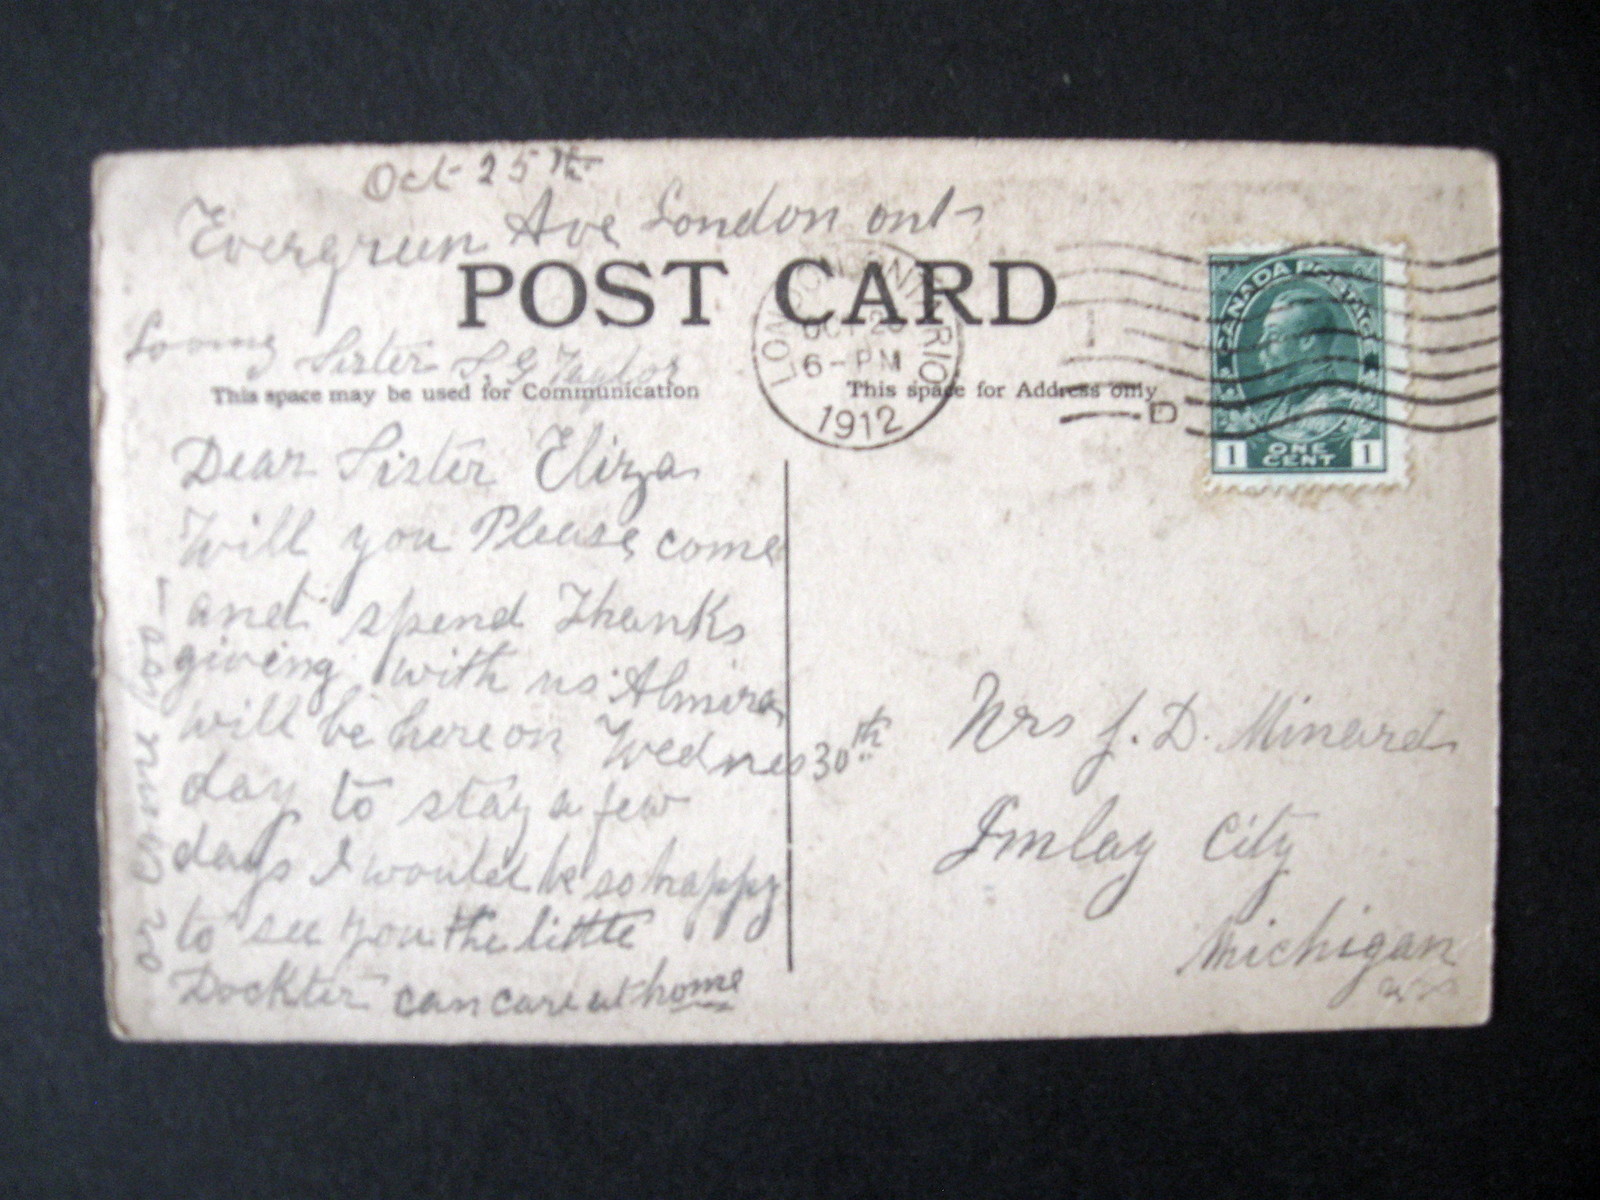 Oct 25th
Evergreen Ave London ont
POST CARD
LONDON ONTARIO
OCT 26
6-PM
1912
CANADA POSTAGE
1 ONE CENT 1
D
Loving Sister S. G Taylor
This space may be used for Communication
This space for Address only
Dear Sister Eliza
Will you Please come
and spend Thanks
giving with us Almira
will be here on Wednes 30th
day to stay a few
days I would be so happy
to see you the little
Dockter can care at home
or come too
Mrs J. D. Minard
Imlay City
Michigan